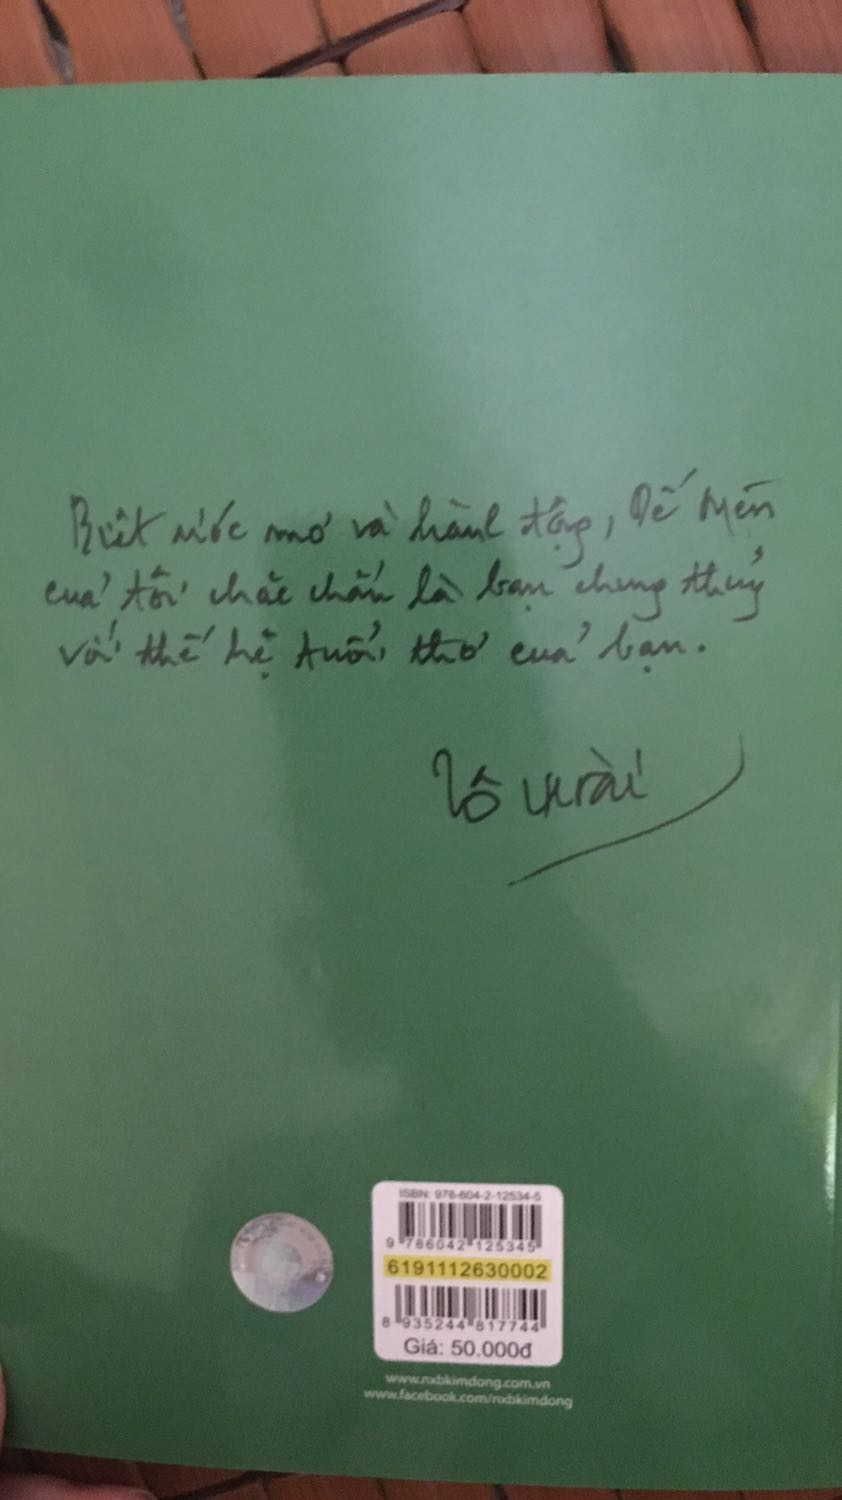 Biết ước mơ và hành động, Dế Mèn
của tôi chắc chắn là bạn chung thuỷ
với thế hệ tuổi thơ của bạn.
Tô Hoài
ISBN: 978-604-2-12534-5
9 786042 125345
6191112630002
8 935244 817744
Giá: 50.000đ
www.nxbkimdong.com.vn
www.facebook.com/nxbkimdong